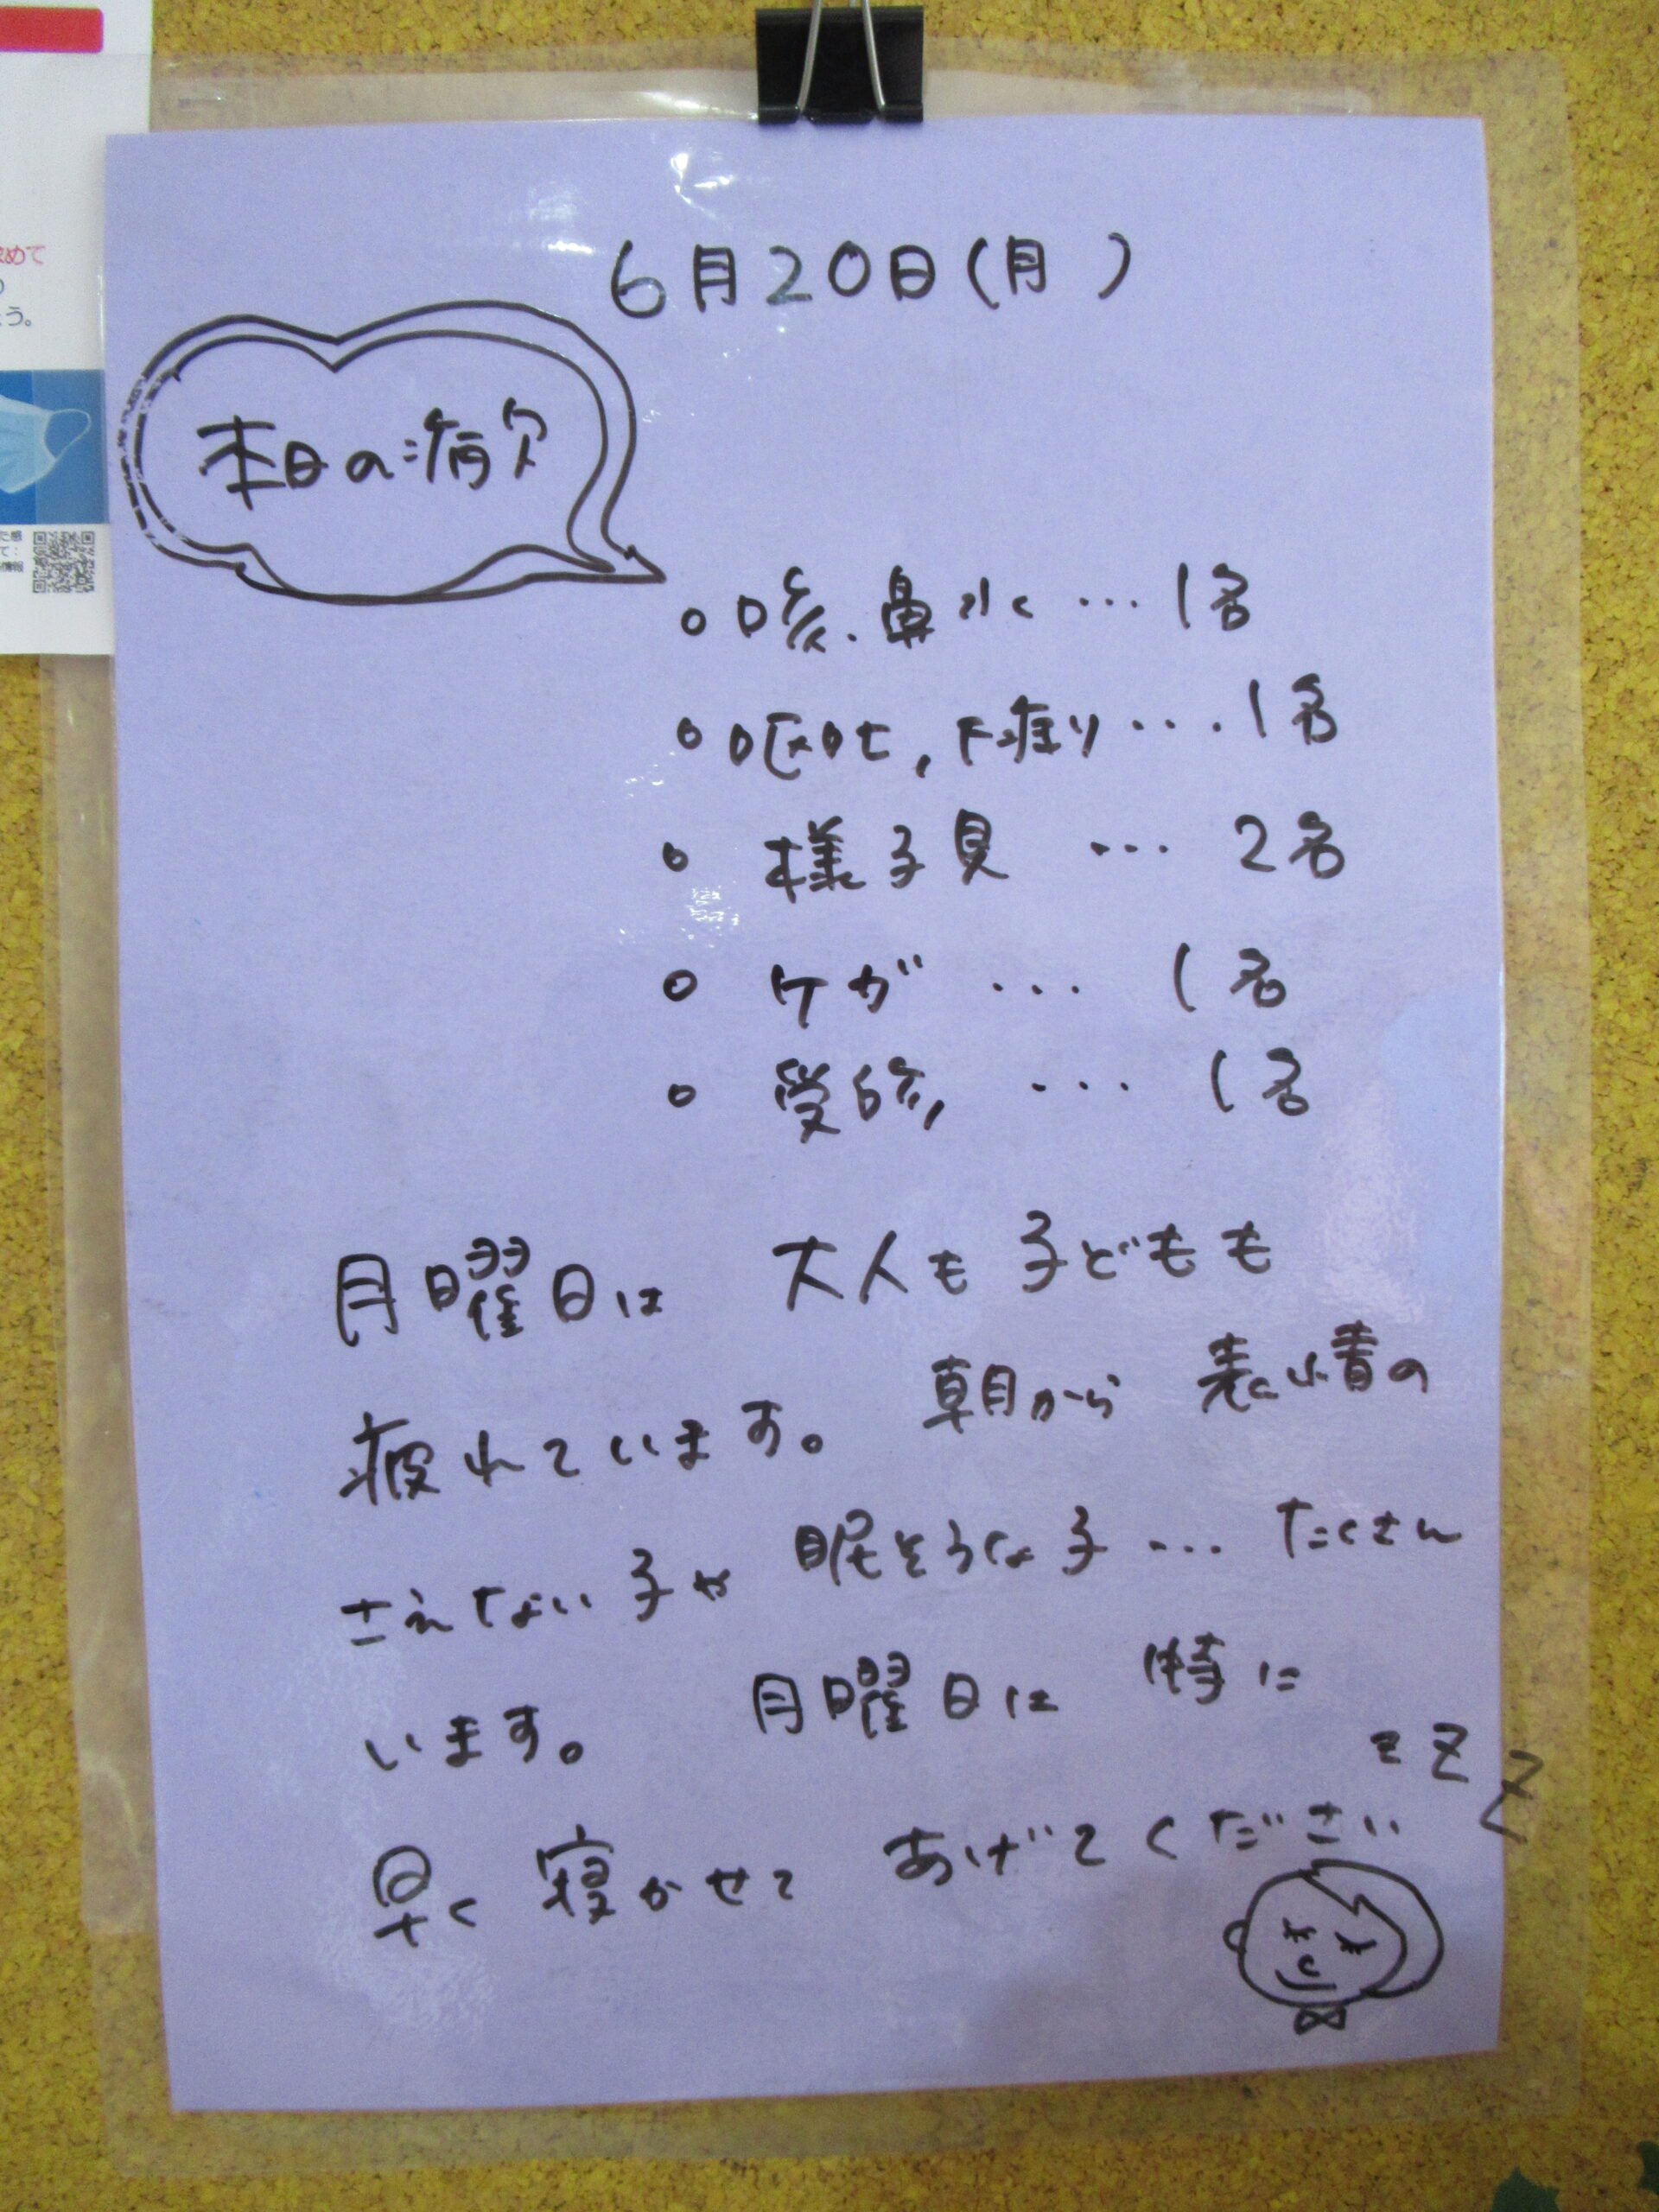 6月20日(月 )
本日の病欠
○咳、鼻水 … 1名
○嘔吐,下痢り … 1名
○様子見 … 2名
○ケガ … 1名
○受診 … 1名
月曜日は 大人も子どもも
疲れています。 朝から 表情の
さえない子や 眠そうな子… たくさん
います。 月曜日は 特に
早く 寝かせて あげてください
z Z Z
めて
う。
て:
情報